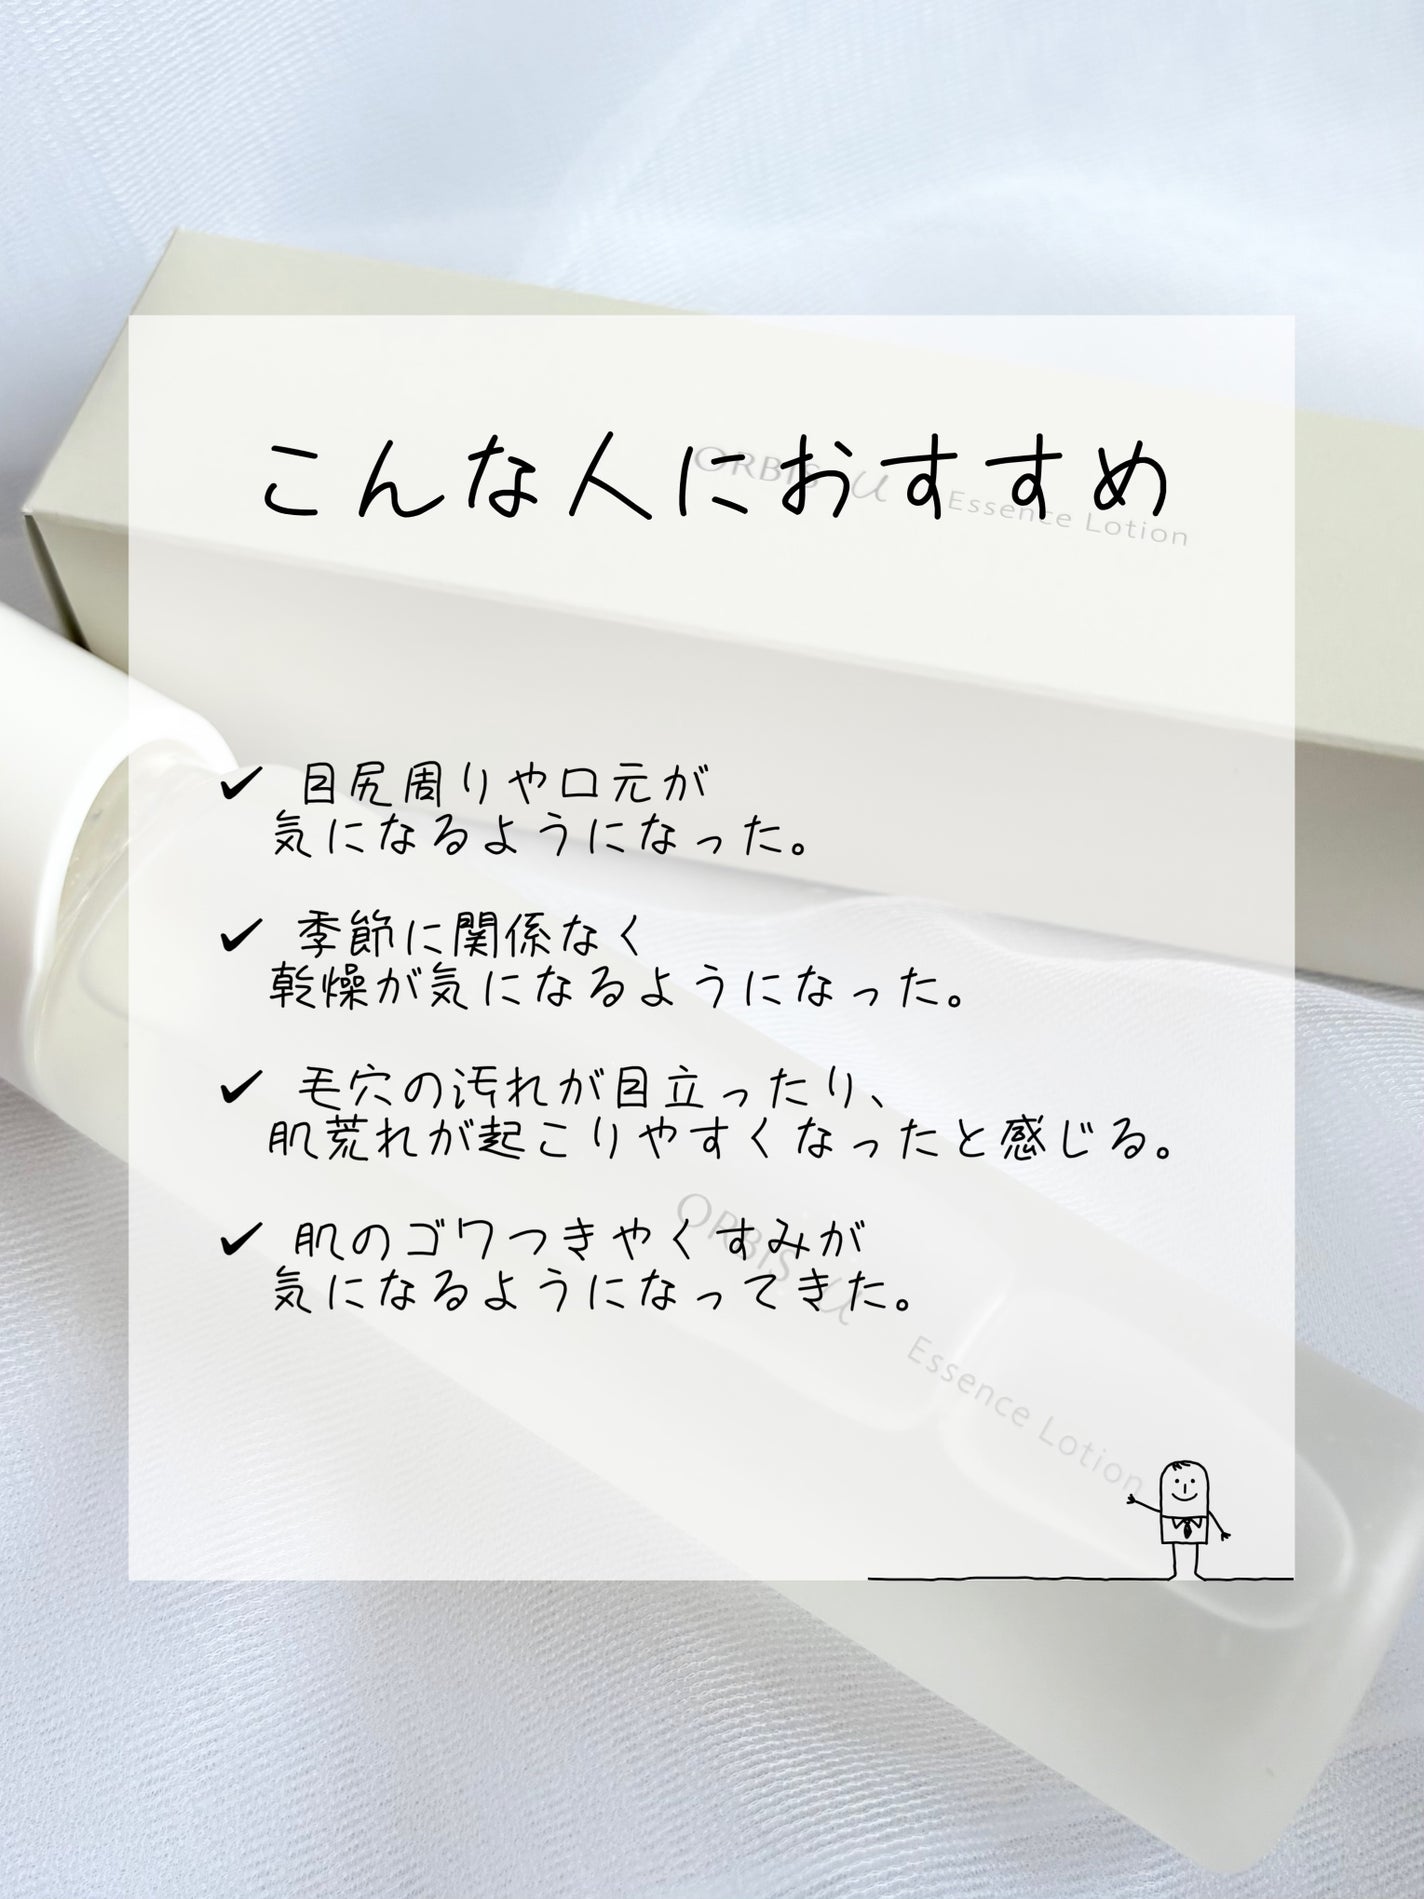 こんな人におすすめ
ORBIS u Essence Lotion
✔ 目尻周りや口元が
気になるようになった。
✔ 季節に関係なく
乾燥が気になるようになった。
✔ 毛穴の汚れが目立ったり、
肌荒れが起こりやすくなったと感じる。
✔ 肌のゴワつきやくすみが
気になるようになってきた。
ORBIS u Essence Lotion